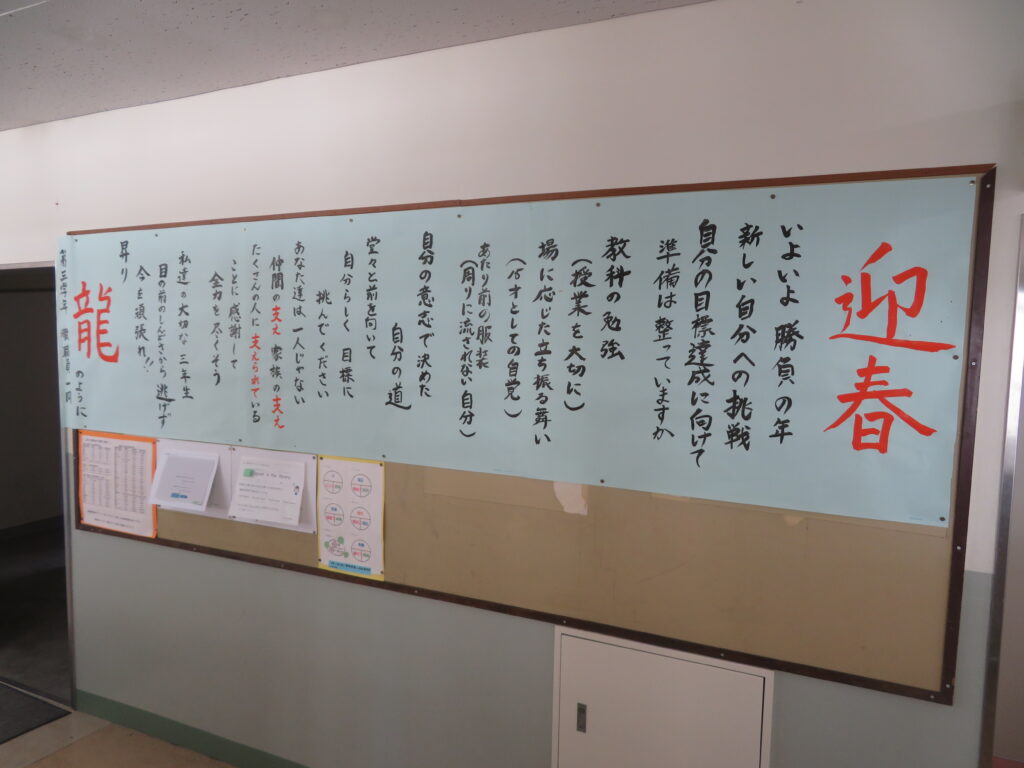 迎春
いよいよ勝負の年
新しい自分への挑戦
自分の目標達成に向けて
準備は整っていますか
教科の勉強
(授業を大切に)
場に応じた立ち振る舞い
(15才としての自覚)
あたり前の服装
(周りに流されない自分)
自分の意志で決めた
自分の道
堂々と前を向いて
自分らしく目標に
挑んでください
あなた達は一人じゃない
仲間の支え家族の支え
たくさんの人に支えられている
ことに感謝して
全力を尽くそう
私達の大切な三年生
目の前のしんどさから逃げず
今を頑張れ!!
昇り
龍のように
第三学年 職員一同